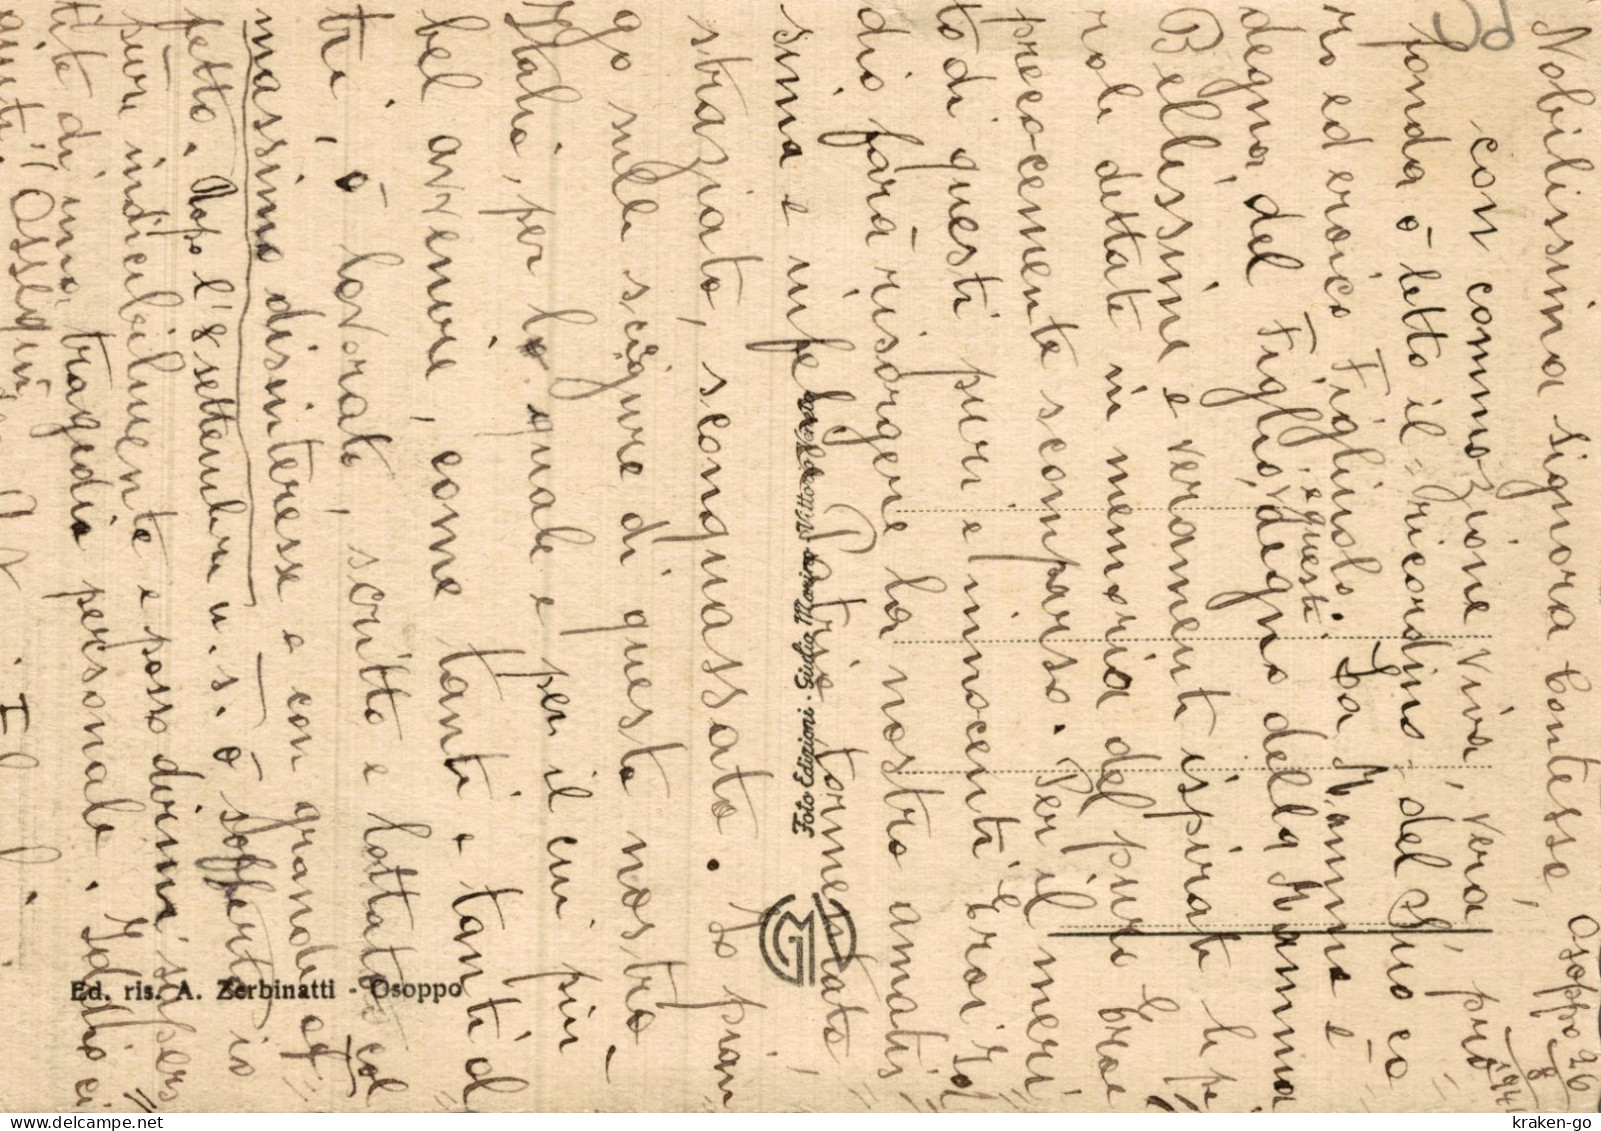 Osoppo 26/8 194
Nobilissima Signora Contessa,
con commozione viva, vera, pro=
fonda ò letto il "ricordino" del Suo ca=
ro ed eroico Figliuolo. La Mamma è
degna del Figlio, e questi degno della Mamma
Bellissime e veramente ispirate le pa=
role dettate in memoria del puro Eroe
precocemente scomparso. Per il meri=
to di questi puri e innocenti Eroi Id=
dio farà risorgere la nostra amatis=
sima e infelice Patria tormentata,
straziata, sconquassata. Io pian=
go sulle sciagure di questa nostra
Italia, per la quale e per il cui più
bel avvenire, come tanti e tanti al=
tri, ò lavorato, scritto e lottato col
massimo disinteresse e con grande af=
fetto. Dopo l'8 settembre u. s. ò sofferto io
pure indicibilmente e posso dirmi supers=
tite di una tragedia personale. Iddio ci
aiuti! Ossequi
Foto Edizioni Giulio Marino Vittorio
GM
Ed. ris. A. Zerbinatti - Osoppo
kraken-go